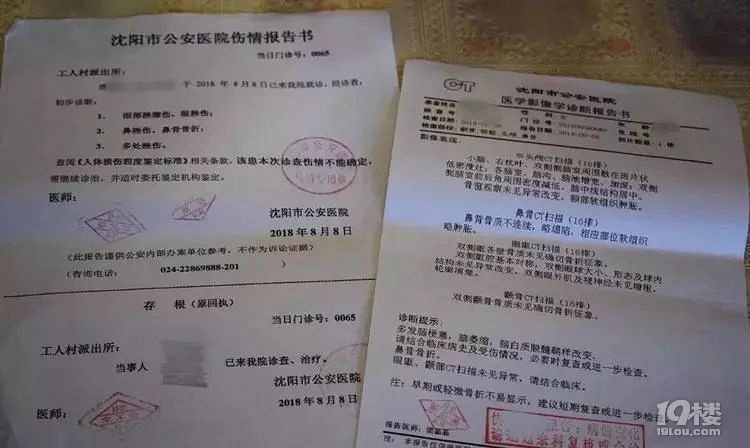 沈阳市公安医院伤情报告书
当日门诊号：0065
工人村派出所：
于 2018 年 8 月 8 日已来我院就诊，经诊查：
初步诊断：
1、 面部挫擦伤、眼挫伤；
2、 鼻挫伤、鼻骨骨折；
3、 多处挫伤。
查阅《人体损伤程度鉴定标准》相关条款，该患本次诊查伤情不能确定，
需继续诊治，并适时委托鉴定机构鉴定。
医师：
沈阳市公安医院
2018 年 8 月 8 日
（此报告谨供公安内部办案单位参考，不作为诉讼证据）
（咨询电话： 024-22869888-201 ）
存 根（原回执）
当日门诊号：0065
工人村派出所：
当事人 已来我院诊查、治疗。
沈阳市公安医院
医师：
2018 年 8 月 8 日
CT
沈阳市公安医院
医学影像学诊断报告书
患者姓名
性 别： 女
年 龄
检 查 号
门 诊 号
住 院 号
检查日期
报告日期：
照片数量：4 张
检查部位：
影像表现：
头颅CT扫描（16排）
小脑、右枕叶、双侧侧脑室周围散在斑片状
低密度灶；各脑室、脑沟、脑池增宽、加深；双侧
侧脑室前后角周围密度减低。脑中线结构居中。
骨窗观察未见异常改变。额部软组织肿胀。
鼻骨CT扫描（16排）
鼻骨骨质不连续，略塌陷，相应部位软组织
略肿胀。
眼眶CT扫描（16排）
双侧眶各壁骨质未见确切骨折征象。
双侧眶腔基本对称，双侧眼球大小、形态及球内
结构未见异常改变。双侧眼外肌及视神经未见增粗，
轮廓清楚。
颧骨CT扫描（16排）
双侧颧骨骨质未见确切骨折征象。
诊断提示：
多发脑梗塞，脑萎缩，脑白质脱髓鞘样改变。
请结合临床病史及受伤情况，必要时复查或进一步检查。
鼻骨骨折。
眼眶、颧部CT扫描未见异常，请结合临床。
注：早期或轻微骨折不易显示，建议短期复查或进一步检查
报告医师：
19楼
19lou.com